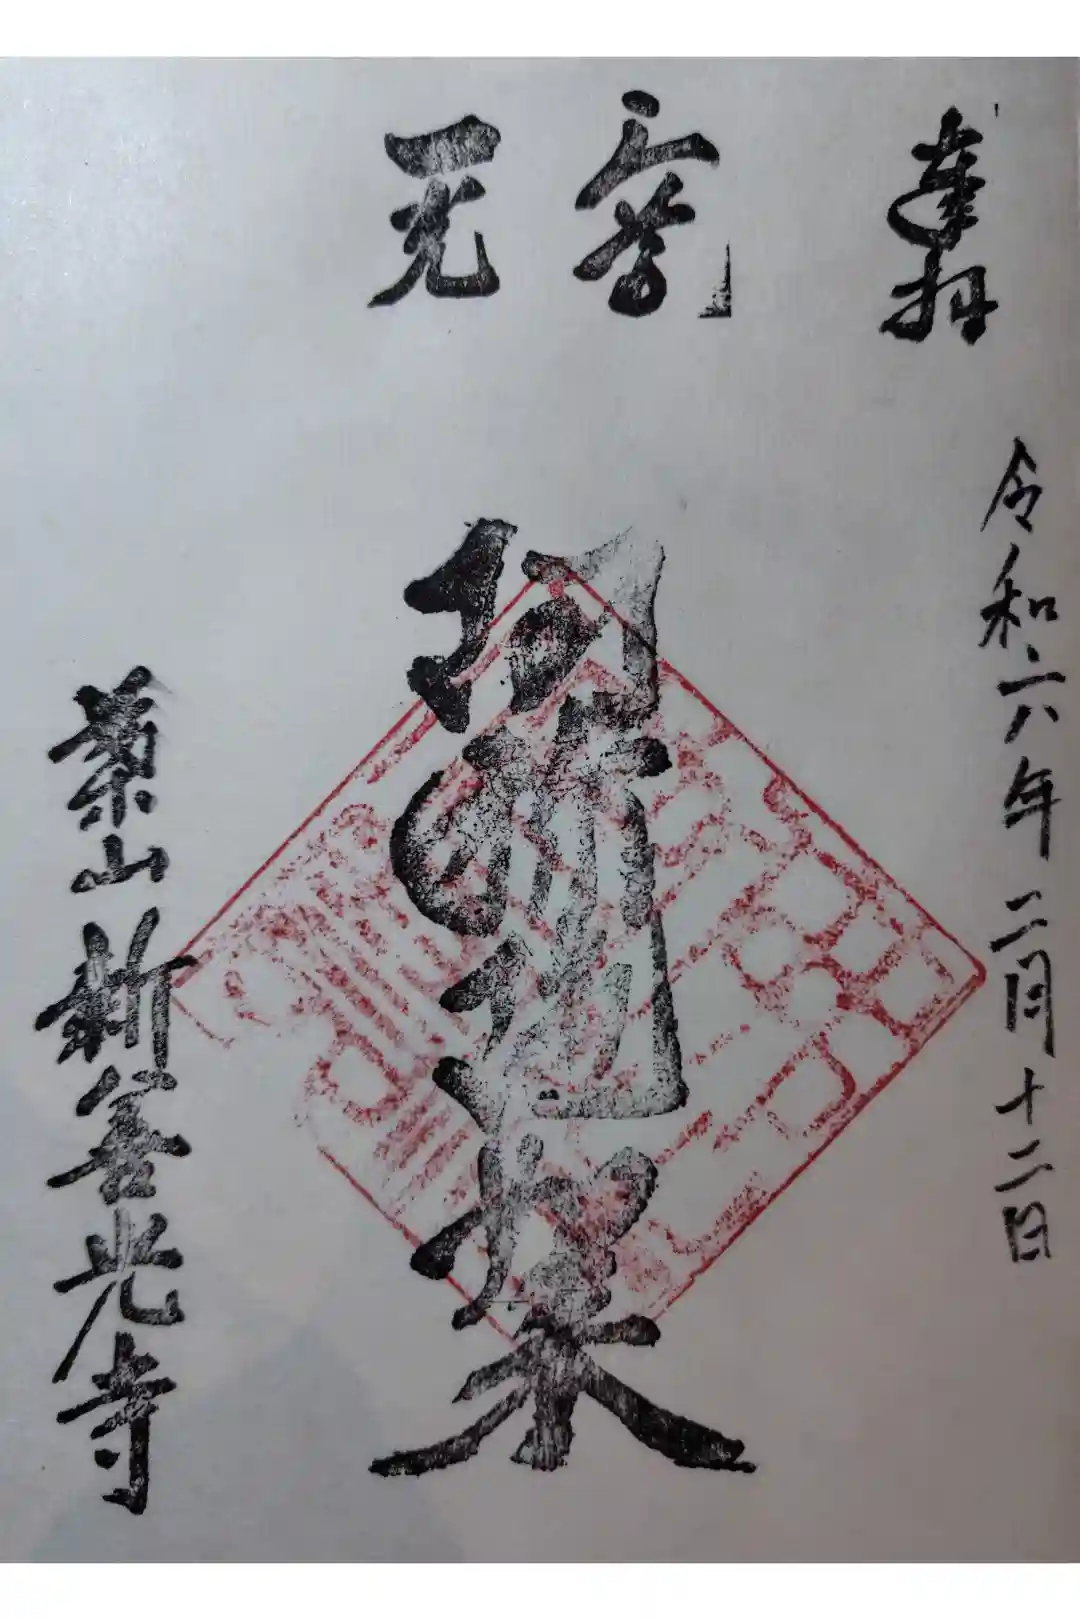 奉拝
令和六年二月十二日
阿弥陀如来
葉山新善光寺